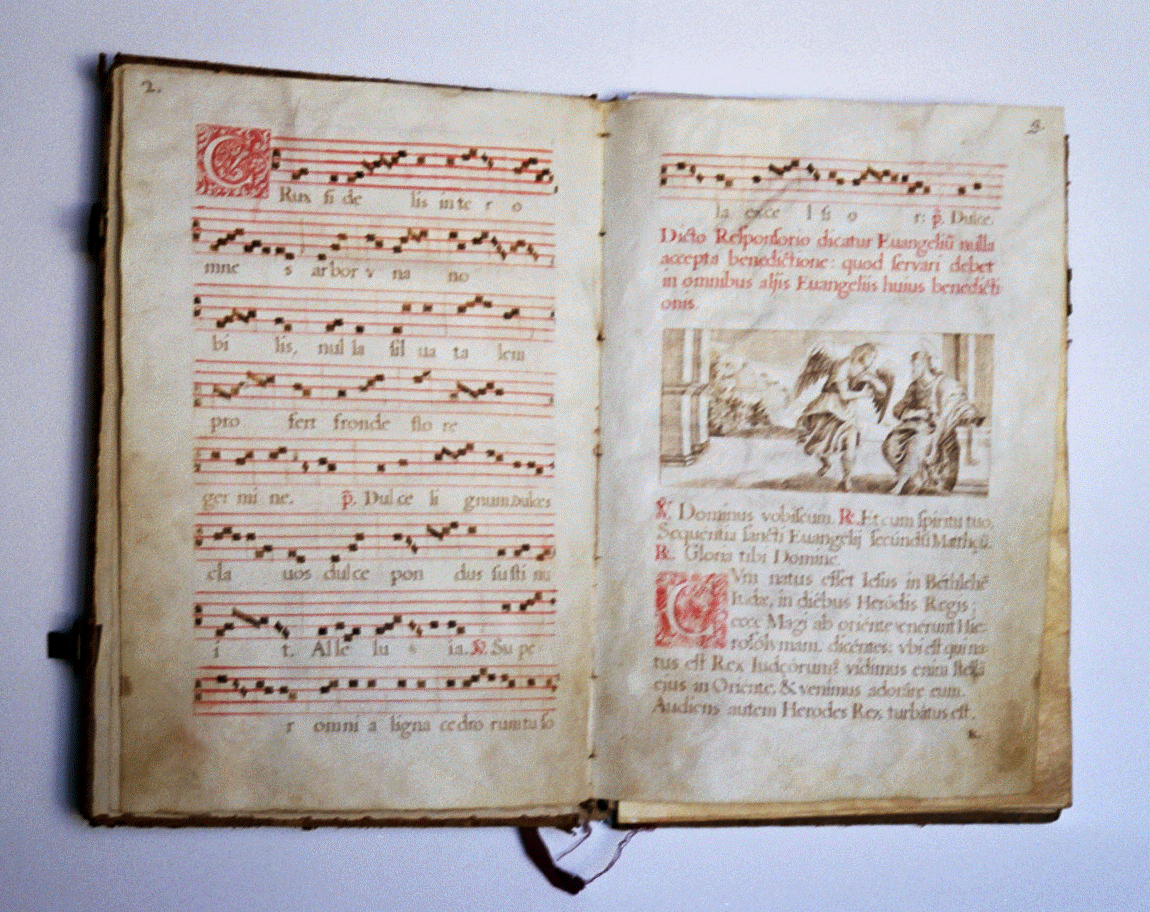 2.
CRux fi de lis in te r o
mne s arbor v na no
bi lis, nul la fil ua ta lem
pro fert fronde flo re
ger mi ne. p̃. Dul ce li gnum. Dulces
cla uos dulce pon dus fu sti nu
i t. Alle lu s ia. ℣. Su pe
r omni a ligna cedro rum tu so
3.
la exce l si o r: p̃. Dulce.
Dicto Responsorio dicatur Euangeliũ nulla
accepta benedictione: quod servari debet
in omnibus alijs Euangeliis huius benedicti
onis.
℣. Dominus vobiscum. ℟. Et cum spiritu tuo.
Sequentia sancti Euangelij secundũ Matthęũ.
℟. Gloria tibi Domine.
CVm natus esset Iesus in Béthlehẽ
Iudæ, in diébus Heródis Regis;
ecce Magi ab oriénte venerunt Hie-
rosólymam, dicéntes: vbi est qui na-
tus est Rex Iudęórum? vidimus enim stellã
ejus in Oriente, & venimus adoráre eum.
Audiens autem Herodes Rex turbátus est,